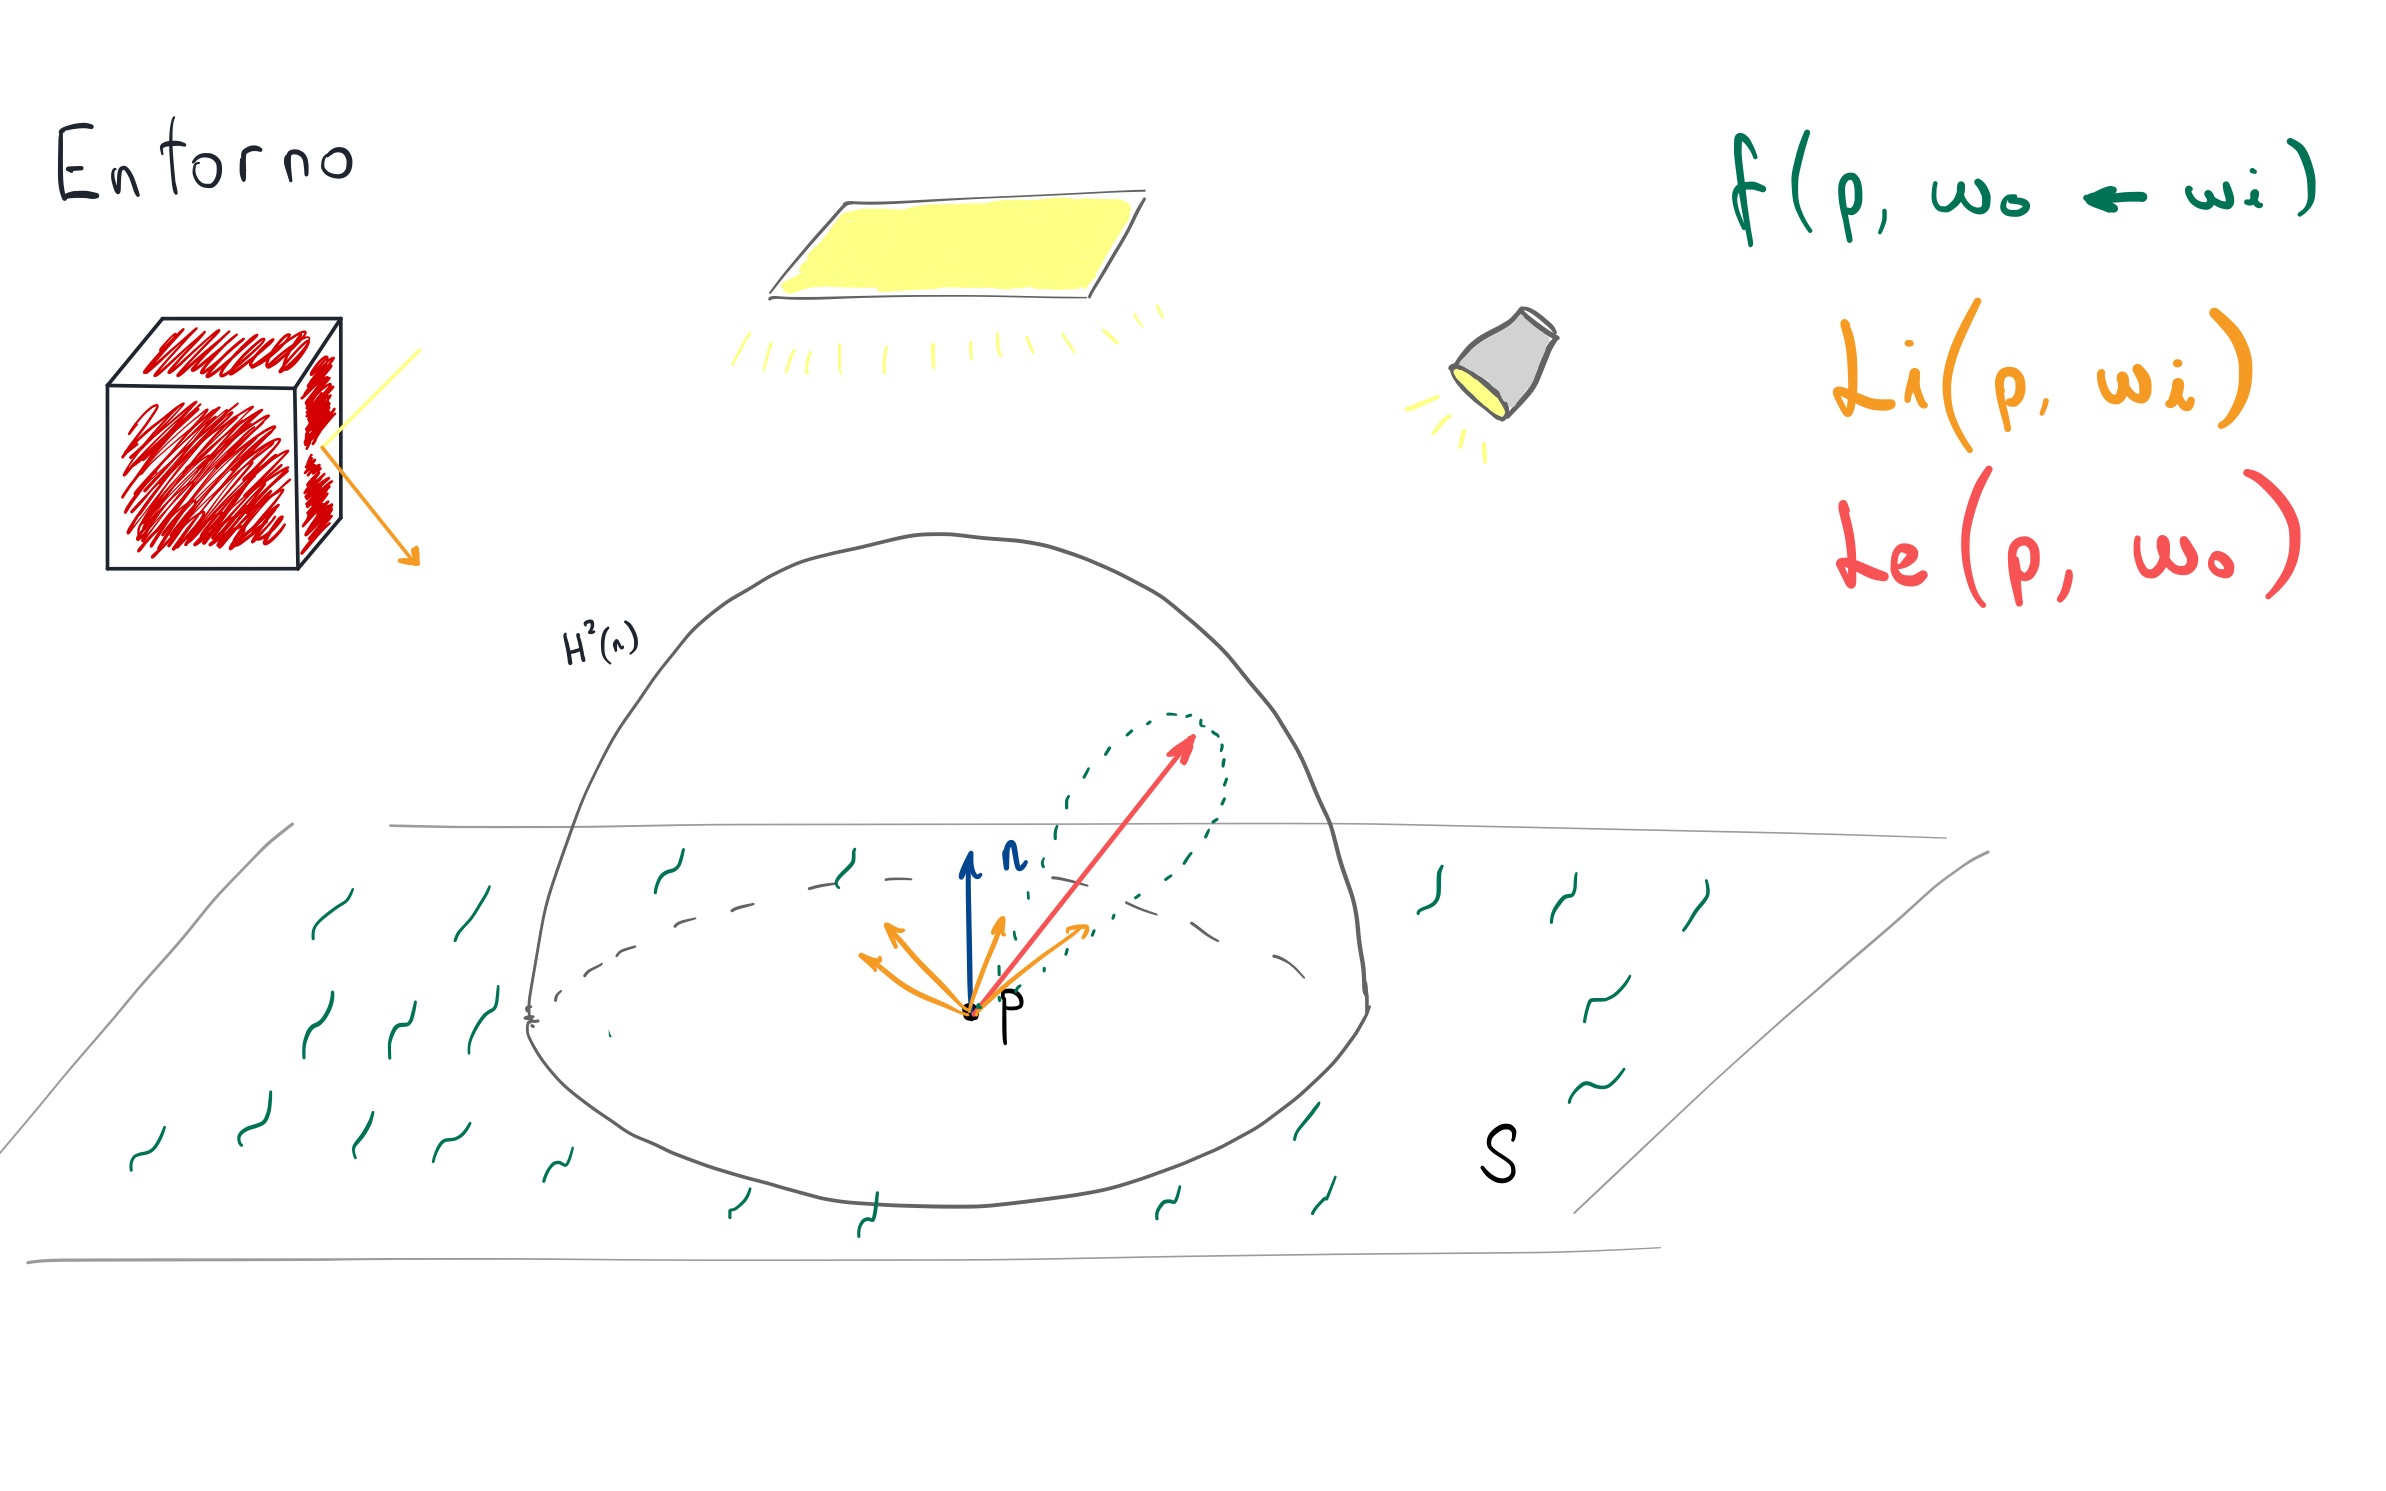 Entorno
f(p, ωo ← ωi)
Li(p, ωi)
Le(p, ωo)
H²(n)
n
p
S